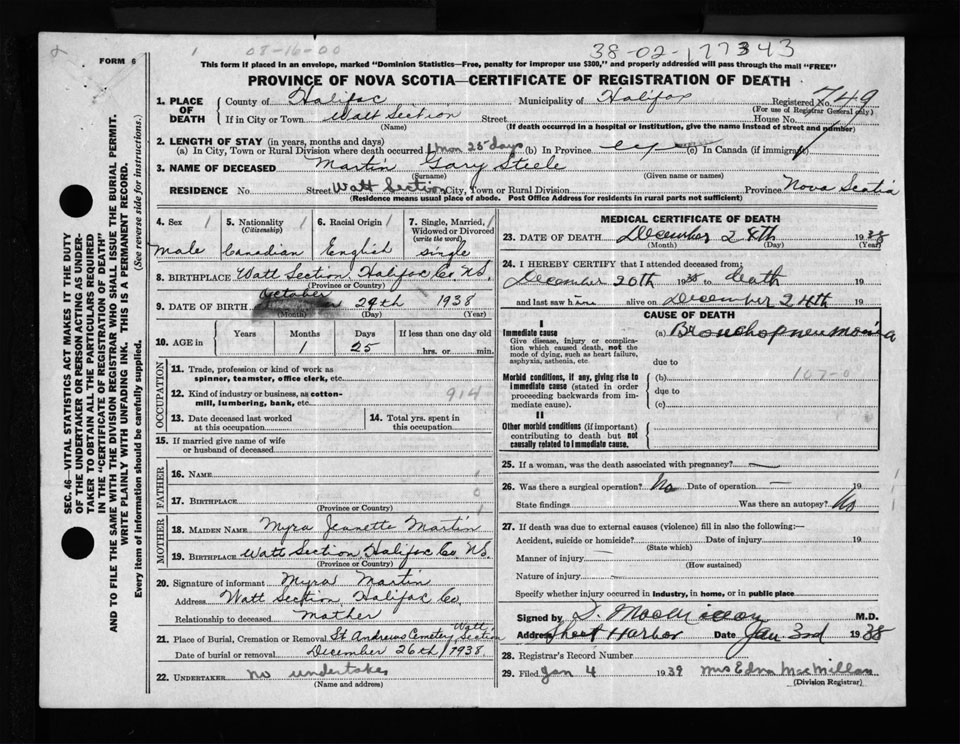 08-16-00
38-02-177343
FORM 6
This form if placed in an envelope, marked "Dominion Statistics—Free, penalty for improper use $300," and properly addressed will pass through the mail "FREE"
PROVINCE OF NOVA SCOTIA—CERTIFICATE OF REGISTRATION OF DEATH
1. PLACE OF DEATH
County of Halifax Municipality of Halifax Registered No. 749
(For use of Registrar General only)
If in City or Town Watt Section Street House No.
(Name) (If death occurred in a hospital or institution, give the name instead of street and number)
2. LENGTH OF STAY (in years, months and days)
(a) In City, Town or Rural Division where death occurred 1 Mon 25 days (b) In Province (c) In Canada (if immigrant)
3. NAME OF DECEASED Martin Gary Steele
(Surname) (Given name or names)
RESIDENCE No. Street Watt Section City, Town or Rural Division Province Nova Scotia
(Residence means usual place of abode. Post Office Address for residents in rural parts not sufficient)
4. Sex 1 5. Nationality 1 6. Racial Origin 1 7. Single, Married, 1
(Citizenship) Widowed or Divorced
(write the word)
Male Canadian English Single
8. BIRTHPLACE Watt Section, Halifax Co. N.S.
(Province or Country)
9. DATE OF BIRTH October 29th 1938
(Month) (Day) (Year)
10. AGE in Years Months Days If less than one day old
1 25 hrs. or min.
OCCUPATION
11. Trade, profession or kind of work as
spinner, teamster, office clerk, etc.
12. Kind of industry or business, as cotton-
mill, lumbering, bank, etc. 914
13. Date deceased last worked
at this occupation
14. Total yrs. spent in
this occupation
15. If married give name of wife
or husband of deceased
FATHER
16. NAME
17. BIRTHPLACE
(Province or Country)
MOTHER
18. MAIDEN NAME Myra Jeanette Martin
19. BIRTHPLACE Watt Section, Halifax Co. N.S.
(Province or Country)
20. Signature of informant Myra Martin
Address Watt Section Halifax Co.
Relationship to deceased Mother
21. Place of Burial, Cremation or Removal St Andrews Cemetery Watt Section
Date of burial or removal December 26th 1938
22. UNDERTAKER no undertaker
(Name and address)
MEDICAL CERTIFICATE OF DEATH
23. DATE OF DEATH December 24th 1938
(Month) (Day) (Year)
24. I HEREBY CERTIFY that I attended deceased from
December 20th 1938 to death 19
and last saw him alive on December 24th 19
CAUSE OF DEATH
I
Immediate cause
Give disease, injury or complica-
tion which caused death, not the
mode of dying, such as heart failure,
asphyxia, asthenia, etc.
(a) Bronchopneumonia
due to
Morbid conditions, if any, giving rise to
immediate cause (stated in order
proceeding backwards from im-
mediate cause).
(b) 107-0
due to
(c)
II
Other morbid conditions (if important)
contributing to death but not
causally related to immediate cause.
25. If a woman, was the death associated with pregnancy?
26. Was there a surgical operation? No Date of operation 19
State findings Was there an autopsy? No
27. If death was due to external causes (violence) fill in also the following:—
Accident, suicide or homicide? Date of injury 19
(State which)
Manner of injury
(How sustained)
Nature of injury
Specify whether injury occurred in industry, in home, or in public place
Signed by MacMillan M.D.
Address Sheet Harbor Date Jan 3rd 1938
28. Registrar's Record Number
29. Filed Jan 4 1939 Mrs Edna MacMillan
(Division Registrar)
SEC. 46—VITAL STATISTICS ACT MAKES IT THE DUTY
OF THE UNDERTAKER OR PERSON ACTING AS UNDER-
TAKER TO OBTAIN ALL THE PARTICULARS REQUIRED
IN THE "CERTIFICATE OF REGISTRATION OF DEATH"
AND TO FILE THE SAME WITH THE DIVISION REGISTRAR WHO SHALL ISSUE THE BURIAL PERMIT.
WRITE PLAINLY WITH UNFADING INK. THIS IS A PERMANENT RECORD.
Every item of information should be carefully supplied. (See reverse side for instructions.)